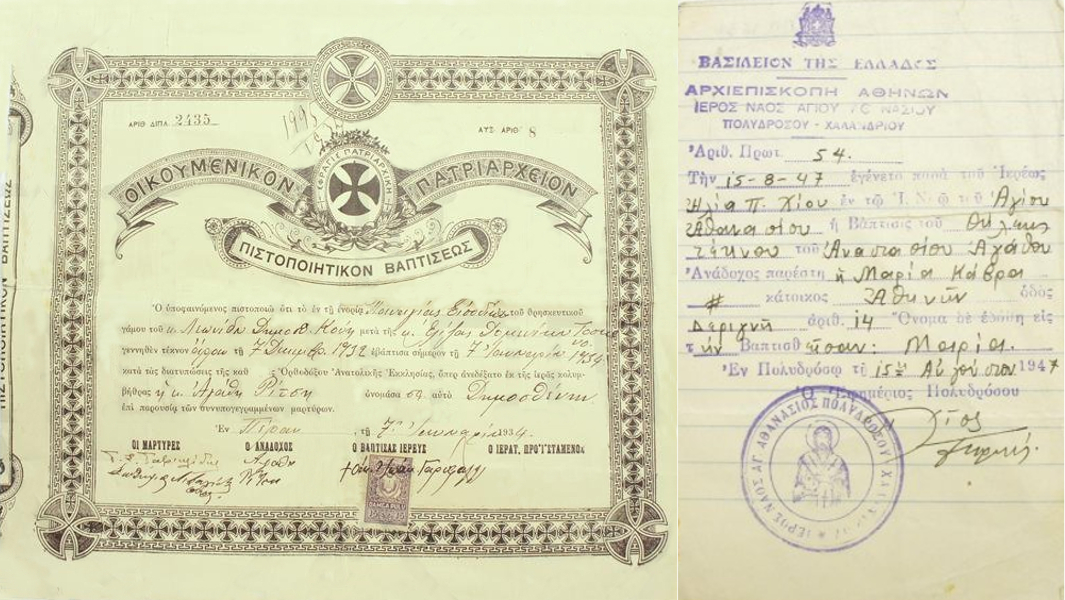 ΑΡΙΘ ΔΙΠΛ. 2435
ΑΥΞ. ΑΡΙΘ 8
ΟΙΚΟΥΜΕΝΙΚΟΝ ΠΑΤΡΙΑΡΧΕΙΟΝ
ΠΙΣΤΟΠΟΙΗΤΙΚΟΝ ΒΑΠΤΙΣΕΩΣ
Ὁ ὑποφαινόμενος πιστοποιῶ ὅτι τὸ ἐν τῇ ἐνορίᾳ τοῦ θρησκευτικοῦ
γάμου τοῦ κ. μετὰ τῆς κ.
γεννηθὲν τέκνον τῇ 7 1932 ἐβαπτίσα σήμερον τῇ 7 Ἰανουαρίου 1934
κατὰ τὰς διατυπώσεις τῆς καθ Ὀρθοδόξου Ἀνατολικῆς Ἐκκλησίας, ὅπερ ἀνεδέξατο ἐκ τῆς ἱερᾶς κολυμ-
βήθρας ἡ κ. Ἀγάθη Ρίτση ὀνομάσασα αὐτὸ Δημοσθένην
ἐπὶ παρουσίᾳ τῶν συνυπογεγραμμένων μαρτύρων.
Ἐν Πέραν, τῇ 7 Ἰανουαρίου 1934.
ΟΙ ΜΑΡΤΥΡΕΣ Ο ΑΝΑΔΟΧΟΣ Ο ΒΑΠΤΙΣΑΣ ΙΕΡΕΥΣ Ο ΙΕΡΑΤ. ΠΡΟΪΣΤΑΜΕΝΟΣ
ΒΑΣΙΛΕΙΟΝ ΤΗΣ ΕΛΛΑΔΟΣ
ΑΡΧΙΕΠΙΣΚΟΠΗ ΑΘΗΝΩΝ
ΙΕΡΟΣ ΝΑΟΣ ΑΓΙΟΥ
ΠΟΛΥΔΡΟΣΟΥ - ΧΑΛΑΝΔΡΙΟΥ
Ἀριθ. Πρωτ. 54.
Τὴν 15-8-47 ἐγένετο παρὰ τοῦ Ἱερέως
Ἠλία Π. Χίου ἐν τῷ Ἱ. Ναῷ τοῦ Ἁγίου
Ἀθανασίου ἡ Βάπτισις τοῦ θήλεως
τέκνου τοῦ Ἀναστασίου Ἀγάθου
Ἀνάδοχος παρέστη ἡ Μαρία Κάβρα
# κάτοικος Ἀθηνῶν ὁδὸς
Δεριγνὴ ἀριθ. 14 Ὄνομα δὲ ἐδόθη εἰς
τὴν Βαπτισθεῖσαν: Μαρία.
Ἐν Πολυδρόσῳ τῇ 15ῃ Αὐγούστου 1947
Ὁ Ἐφημέριος Πολυδρόσου
ΙΕΡΟΣ ΝΑΟΣ ΑΓ. ΑΘΑΝΑΣΙΟΣ ΠΟΛΥΔΡΟΣΟΥ